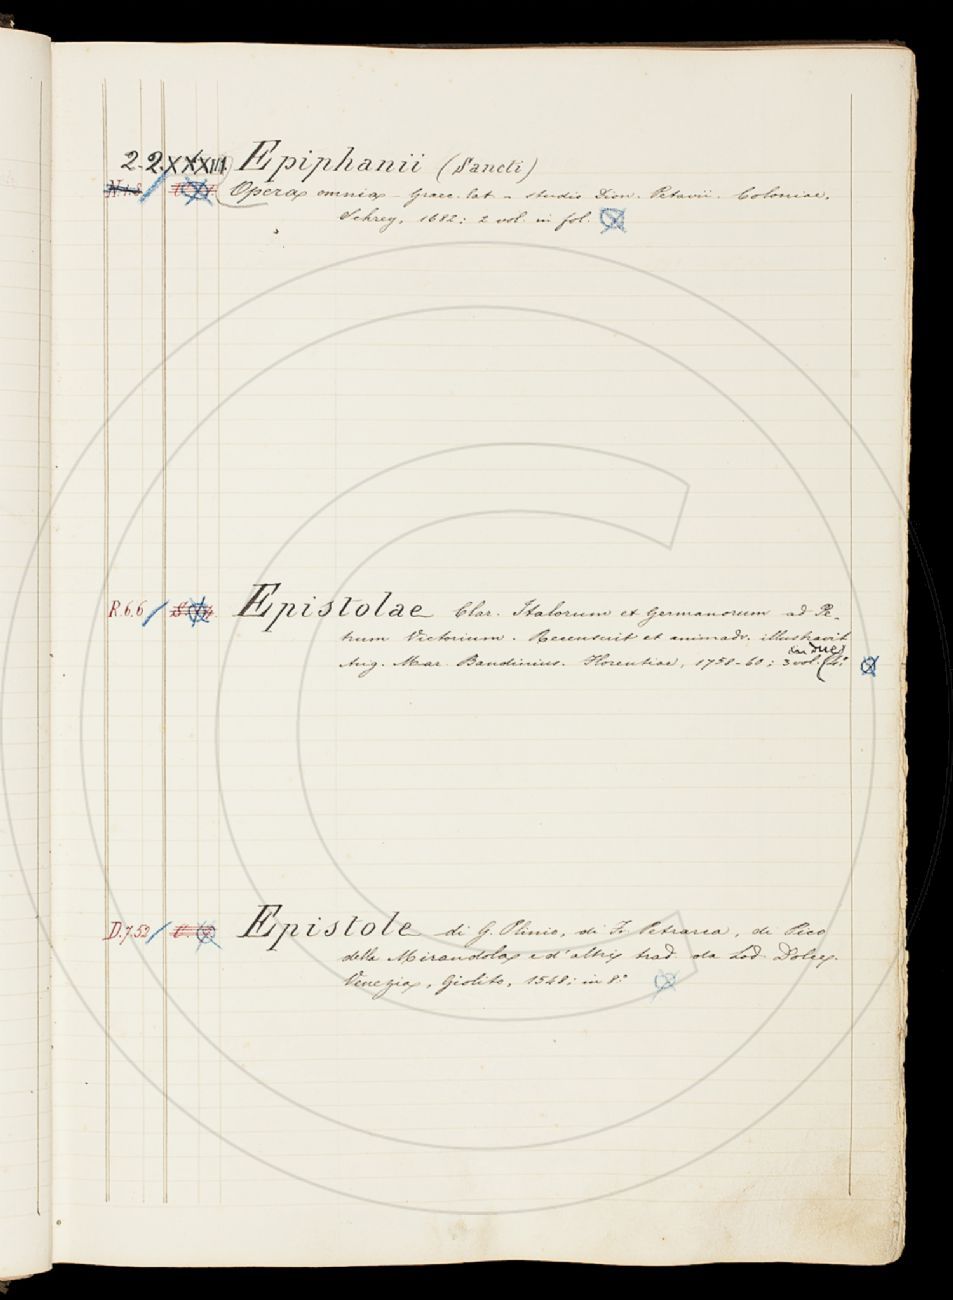 2.2.XXXIII. Epiphanii (Sancti)
N.1.8 Opera omnia Graec. lat - studio Dion. Petavii. Coloniae,
Schrey, 1682; 2 vol. in fol.
R.6.6 Epistolae Clar. Italorum et Germanorum ad Pe-
trum Victorium. Recensuit et animadv. illustravit
in due
Ang. Mar. Bandinius. Florentiae, 1758-60; 3 vol. 4.°
D.7.52 Epistole di G. Plinio, di F. Petrarca, di Pico
della Mirandola e d'altri trad. da Lod. Dolce.
Venezia, Giolito, 1548; in 8.°